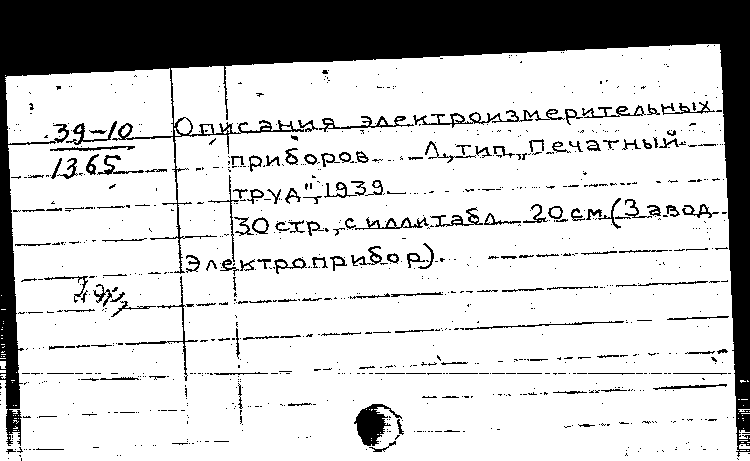 39-10
1365
Описания электроизмерительных
приборов. Л., тип. „Печатный
труд", 1939.
30 стр., с илл. и табл. 20 см. (Завод
Электроприбор).